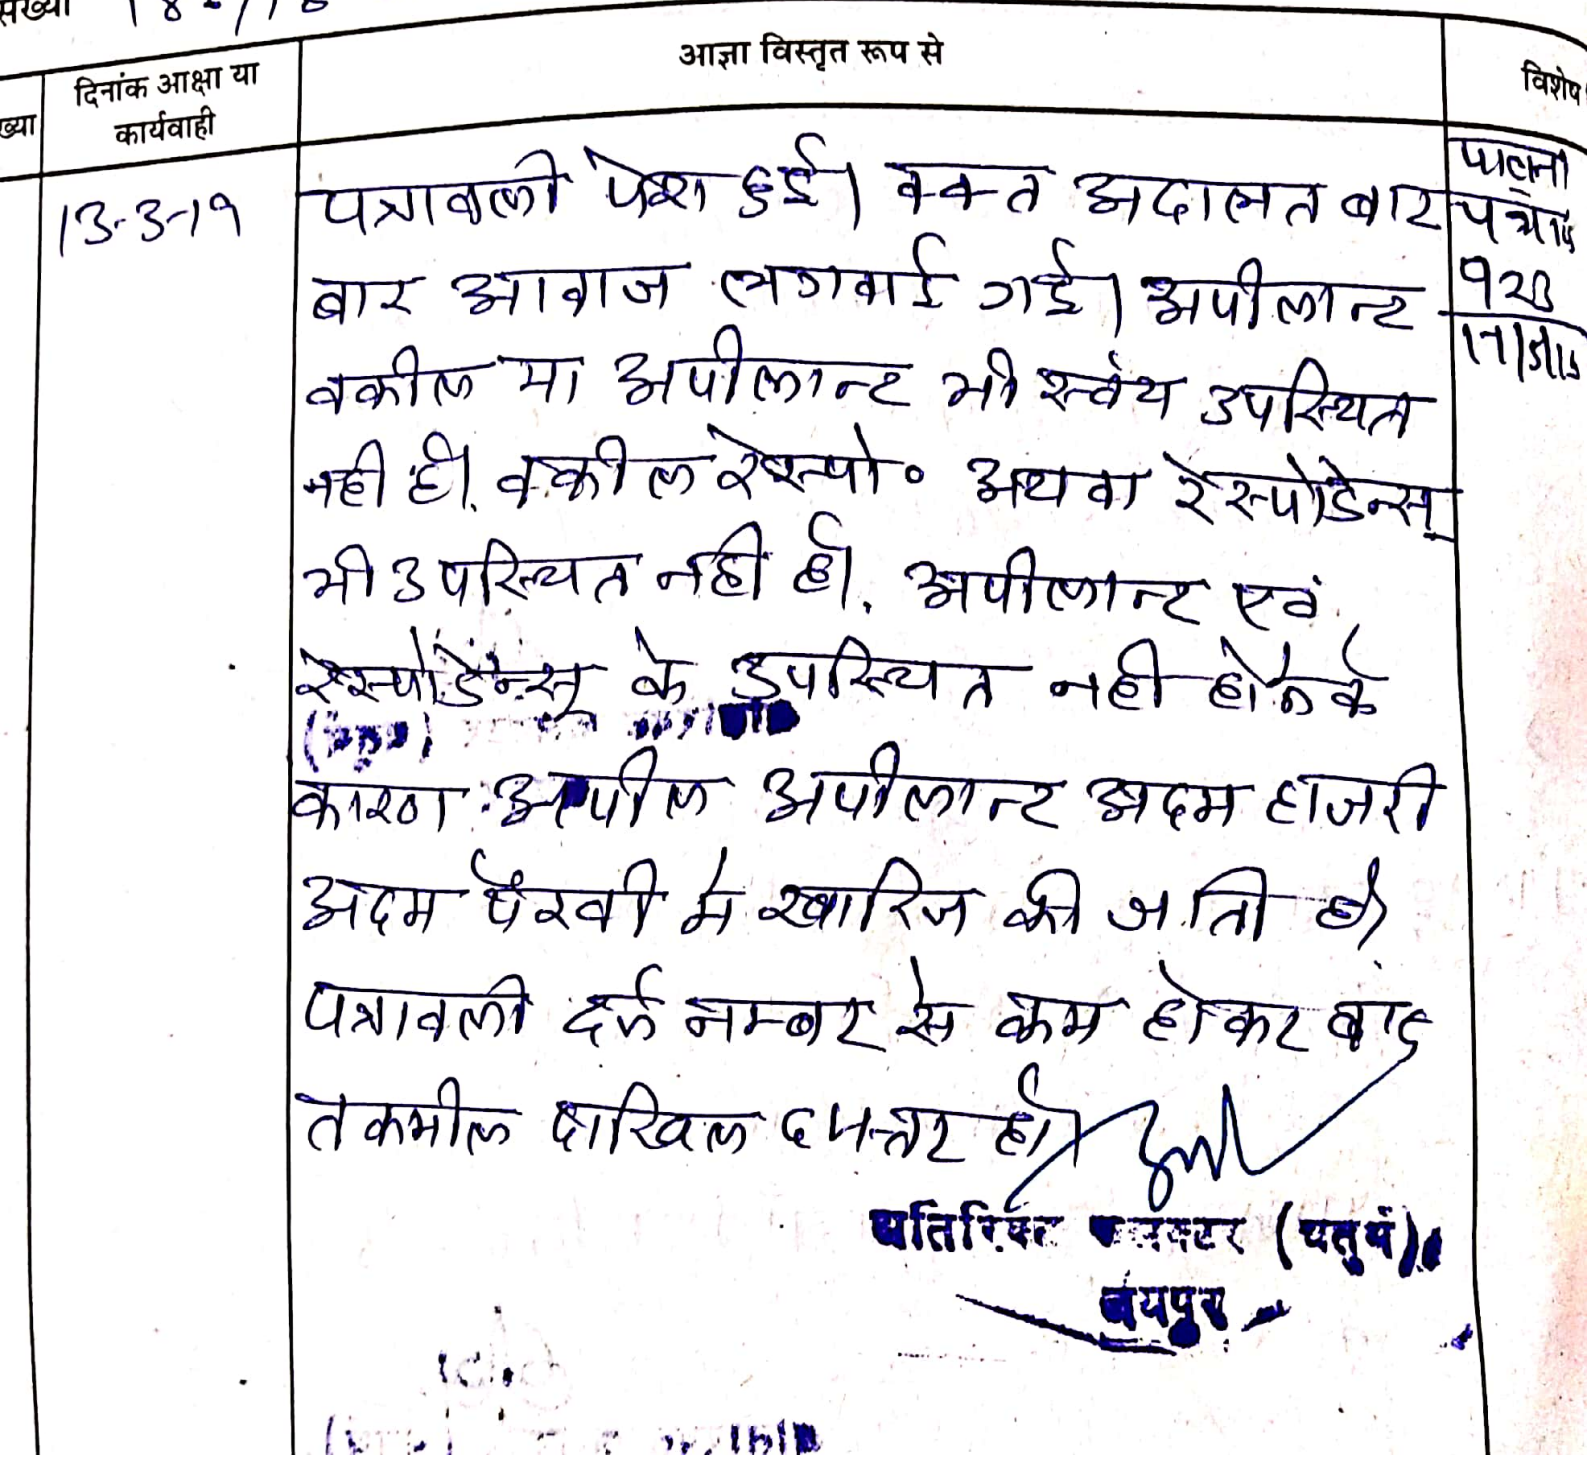 संख्या
आज्ञा विस्तृत रूप से
विशेष
दिनांक आक्षा या
कार्यवाही
ख्या
13-3-19
पत्रावली पेश हुई। वक्त अदालत बार
बार आवाज लगवाई गई। अपीलान्ट
वकील या अपीलान्ट भी स्वंय उपस्थित
नही है। वकील रेस्पो० अथवा रेस्पोडेन्स्
भी उपस्थित नही है। अपीलान्ट एवं
रेस्पोडेन्स् के उपस्थित नही होने के
कारण अपील अपीलान्ट अदम हाजरी
अदम पैरवी मे खारिज की जाती है।
पत्रावली दर्ज नम्बर से कम होकर बाद
तकमील दाखिल दफ्तर हो।
अतिरिक्त कलक्टर (चतुर्थ)
जयपुर
पालना